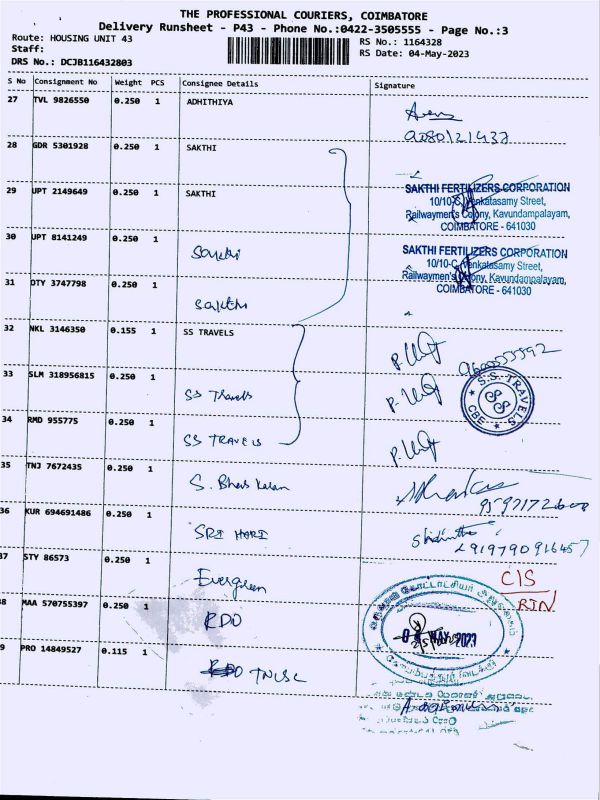 THE PROFESSIONAL COURIERS, COIMBATORE
Delivery Runsheet - P43 - Phone No.:0422-3505555 - Page No.:3
Route: HOUSING UNIT 43
RS No.: 1164328
Staff:
RS Date: 04-May-2023
DRS No.: DCJB116432803
S No Consignment No Weight PCS Consignee Details Signature
27 TVL 9826550 0.250 1 ADHITHIYA
28 GDR 5301928 0.250 1 SAKTHI
29 UPT 2149649 0.250 1 SAKTHI
SAKTHI FERTILIZERS CORPORATION
10/10-C, Venkatasamy Street,
Railwaymen's Colony, Kavundampalayam,
COIMBATORE - 641030
30 UPT 8141249 0.250 1 Sakthi
SAKTHI FERTILIZERS CORPORATION
10/10-C, Venkatasamy Street,
Railwaymen's Colony, Kavundampalayam,
COIMBATORE - 641030
31 DTY 3747798 0.250 1 Sakthi
32 NKL 3146350 0.155 1 SS TRAVELS
33 SLM 318956815 0.250 1 SS Travels
S.S. TRAVELS
CBE
34 RMD 955775 0.250 1 SS TRAVELS
35 TNJ 7672435 0.250 1 S. Bhaskaran
36 KUR 694691486 0.250 1 SRI HARI
919790916457
37 STY 86573 0.250 1 Evergreen
CIS
RTN
38 MAA 570755397 0.250 1 RDO
MAY 2023
39 PRO 14849527 0.115 1 TNUSC